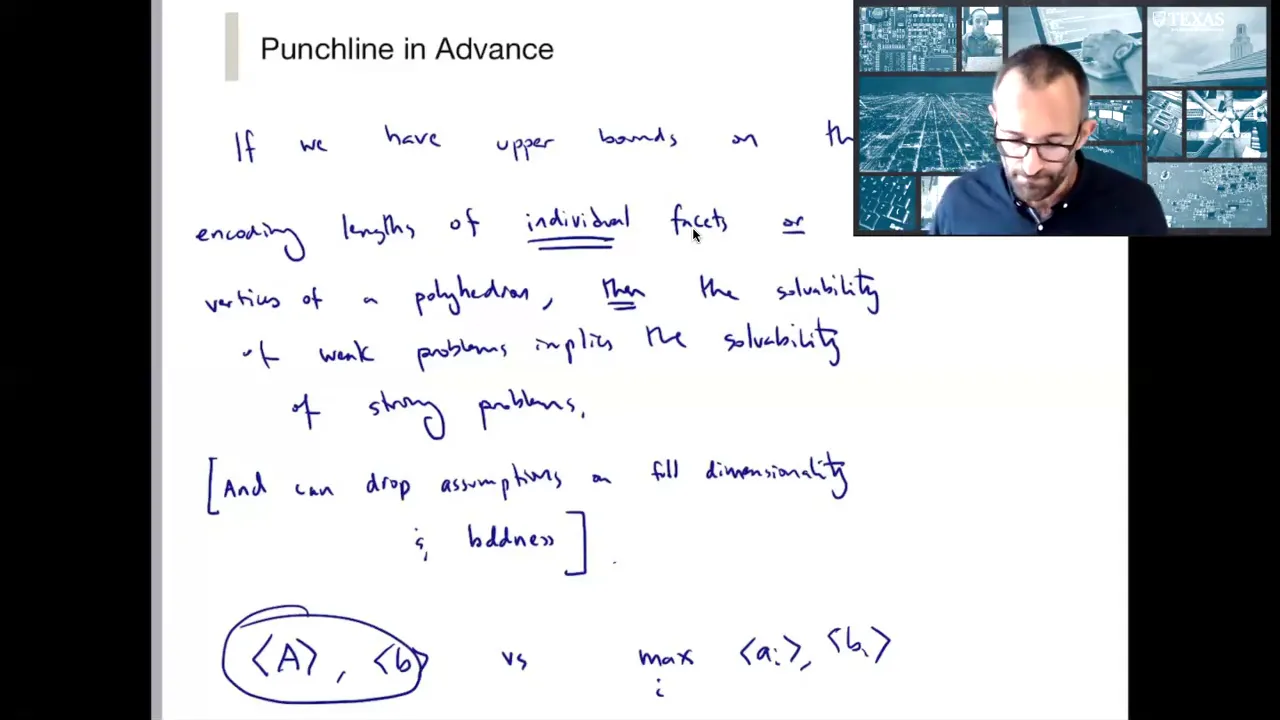 Punchline in Advance
TEXAS
If we have upper bounds on th
encoding lengths of individual facets or
vertices of a polyhedron, then the solvability
of weak problems implies the solvability
of strong problems.
[And can drop assumptions on full dimensionality
& bddness]
⟨A⟩, ⟨b⟩ vs max ⟨aᵢ⟩, ⟨bᵢ⟩
i